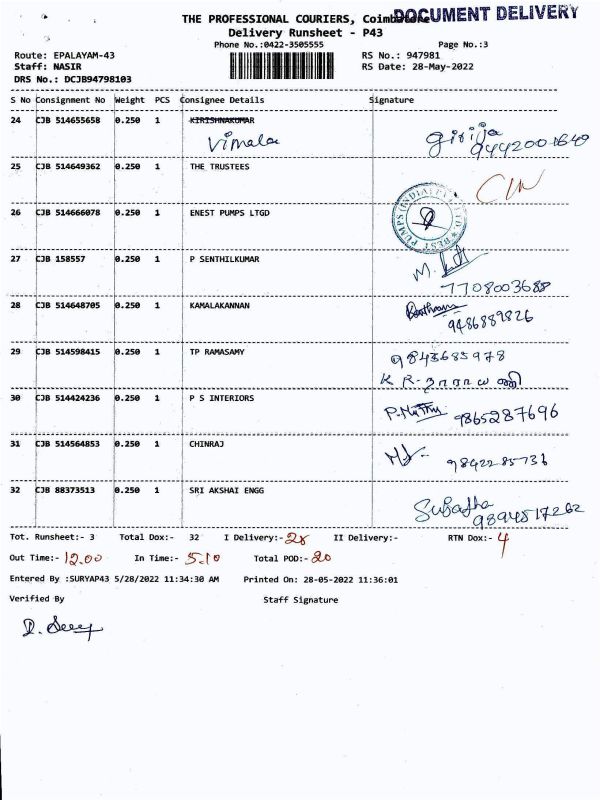 THE PROFESSIONAL COURIERS, Coimbatore
DOCUMENT DELIVERY
Delivery Runsheet - P43
Phone No.:0422-3505555 Page No.:3
Route: EPALAYAM-43 RS No.: 947981
Staff: NASIR RS Date: 28-May-2022
DRS No.: DCJB94798103
S No Consignment No Weight PCS Consignee Details Signature
24 CJB 514655658 0.250 1 KIRISHNAKUMAR
Vimala girija
9442001640
25 CJB 514649362 0.250 1 THE TRUSTEES
26 CJB 514666078 0.250 1 ENEST PUMPS LTGD
BEST PUMPS (INDIA) PVT LTD
27 CJB 158557 0.250 1 P SENTHILKUMAR
7708003688
28 CJB 514648705 0.250 1 KAMALAKANNAN
9486889826
29 CJB 514598415 0.250 1 TP RAMASAMY 9843685978
K R-நாராயணி
30 CJB 514424236 0.250 1 P S INTERIORS P.Muthu 9865287696
31 CJB 514564853 0.250 1 CHINRAJ 9842285736
32 CJB 88373513 0.250 1 SRI AKSHAI ENGG Subatha
9894517262
Tot. Runsheet:- 3 Total Dox:- 32 I Delivery:- 28 II Delivery:- RTN Dox:- 4
Out Time:- 12.00 In Time:- 5.10 Total POD:- 20
Entered By :SURYAP43 5/28/2022 11:34:30 AM Printed On: 28-05-2022 11:36:01
Verified By Staff Signature